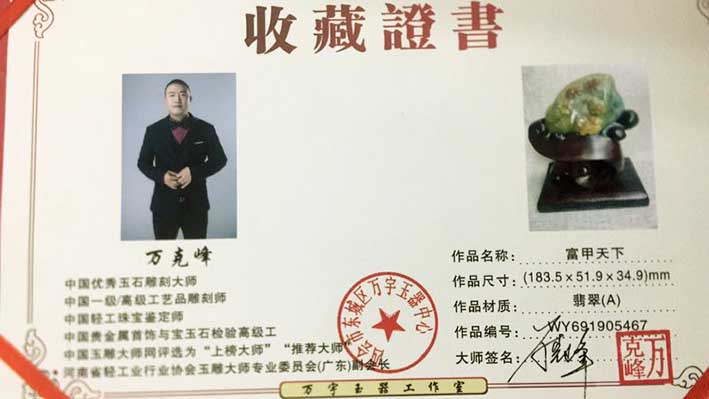 收藏證書
万克峰
中国优秀玉石雕刻大师
中国一级/高级工艺品雕刻师
中国轻工珠宝鉴定师
中国贵金属首饰与宝玉石检验高级工
中国玉雕大师网评选为“上榜大师” “推荐大师”
河南省轻工业行业协会玉雕大师专业委员会(广东)副会长
四会市东城区万宇玉器中心
作品名称: 富甲天下
作品尺寸: (183.5×51.9×34.9)mm
作品材质: 翡翠(A)
作品编号: WY691905467
大师签名:
万克峰
万宇玉器工作室